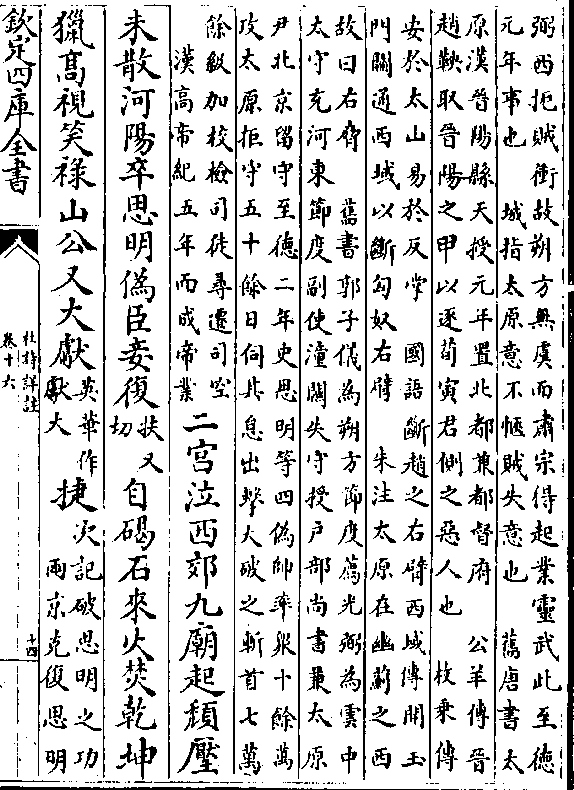 弼西扼賊衝故朔方無虞而肅宗得起業靈武此至德
元年事也　城指太原意不愜賊失意也　舊唐書太
原漢晉陽縣天授元年置北都兼都督府　公羊傳晉
趙鞅取晉陽之甲以逐荀寅君側之惡人也　枚乘傳
安於太山易於反掌　國語斷趙之右臂西域傳開玉
門關通西域以斷匈奴右臂　朱注太原在幽薊之西
故曰右臂　舊書郭子儀為朔方節度薦光弼為雲中
太守充河東節度副使潼關失守授戶部尚書兼太原
尹北京留守至德二年史思明等四偽帥率衆十餘萬
攻太原拒守五十餘日伺其怠出擊大破之斬首七萬
餘級加校檢司徒尋遷司空
漢高帝紀五年而成帝業
二宫泣西郊九廟起頽壓
未散河陽卒思明偽臣妾復
扶又
切
自碣石來火焚乾坤
獵高視笑祿山公又大獻
英華作
獻大
捷
次記破思明之功
兩京克復思明
欽定四庫全書
杜詩詳註
卷十六
十四